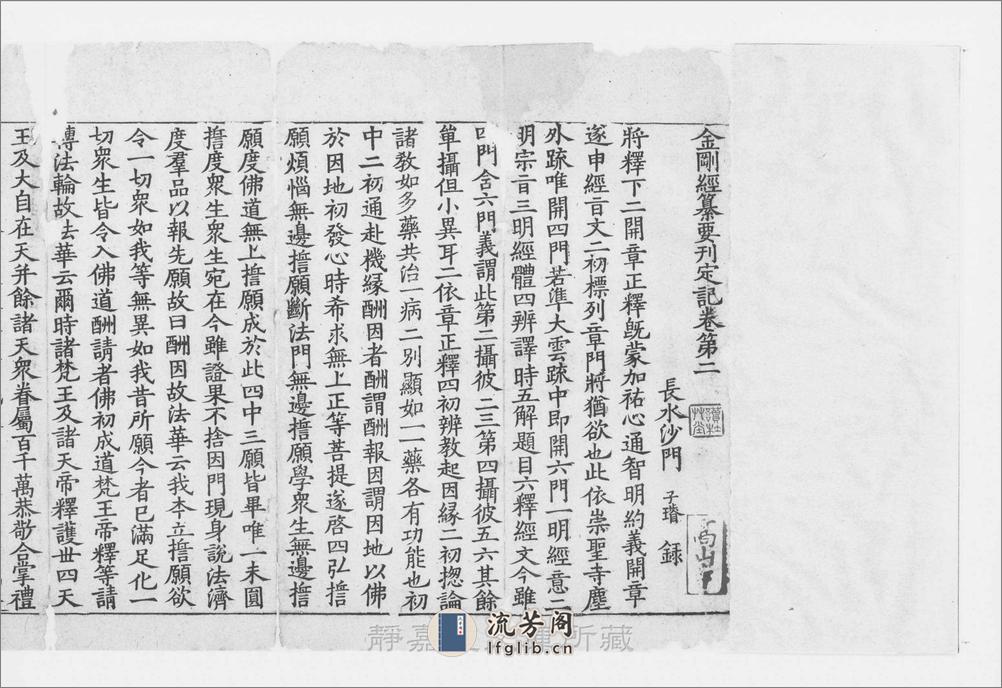 金剛經纂要刊定記卷第二
長水沙門 子璿 錄
將釋下二開章正釋旣蒙加祐心通智明約義開章
遂申經旨文二初標列章門將猶欲也此依崇聖寺塵
外疏唯開四門若準大雲疏中即開六門一明經意二
明宗旨三明經體四辨譯時五解題目六釋經文今雖
四門含六門義謂此第二攝彼二三第四攝彼五六其餘
單攝但小異耳二依章正釋四初辨教起因縁二初揔論
諸教如多藥共治一病二別顯如一一藥各有功能也初
中二初通赴機縁酬因者酬謂酬報因謂因地以佛
於因地初發心時希求無上正等菩提遂啓四弘擔
願煩惱無邊擔願斷法門無邊擔願學衆生無邊擔
願度佛道無上擔願成於此四中三願皆畢唯一未圓
擔度衆生衆生宛在今雖證果不捨因門現身說法濟
度羣品以報先願故曰酬因故法華云我本立擔願欲
令一切衆如我等無異如我昔所願今者已滿足化一
切衆生皆令入佛道酬請者佛初成道梵王帝釋等請
轉法輪故法華云爾時諸梵王及諸天帝釋護丗四天
王及大自在天并餘諸天衆眷屬百千萬恭敬合掌禮
靜嘉 所藏
流芳阁
lfglib.cn